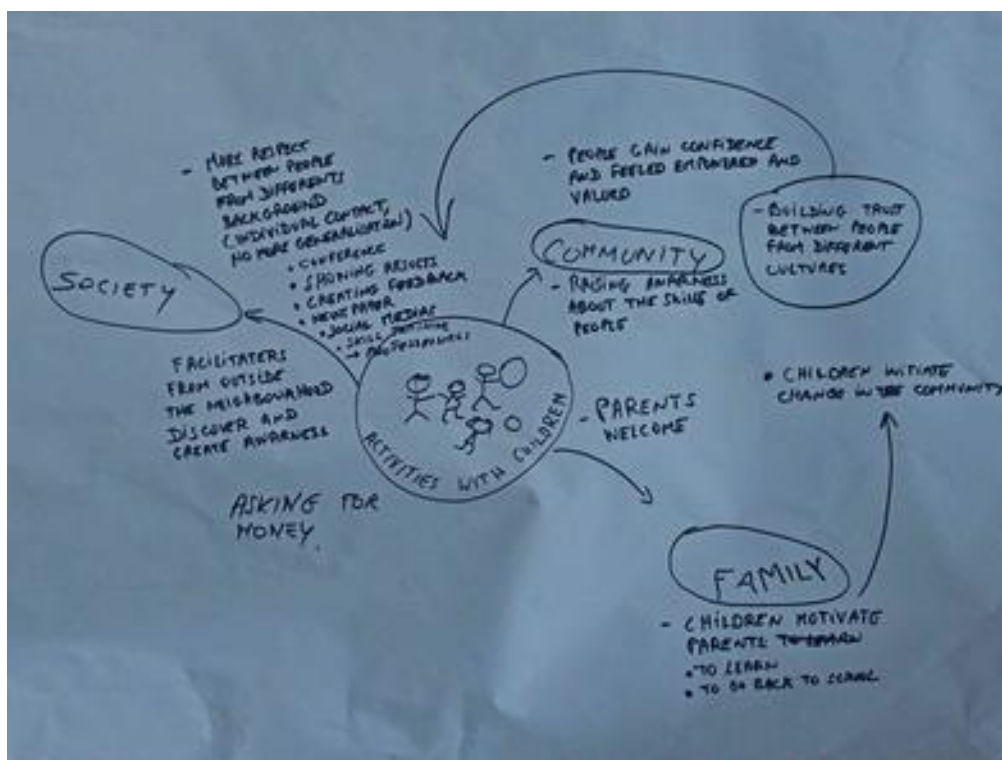 - MORE RESPECT
BETWEEN PEOPLE
FROM DIFFERENTS
BACKGROUND
(INDIVIDUAL CONTACT,
NO MORE GENERALISATION)
• CONFERENCE
• SHOWING RESULTS
• CREATING FEEDBACK
• NEWSPAPER
• SOCIAL MEDIAS
• SKILL
→ PROFESSIONALS
SOCIETY
FACILITATERS
FROM OUTSIDE
THE NEIGHBOURHOOD
DISCOVER AND
CREATE AWARNESS
ASKING FOR
MONEY
ACTIVITIES WITH CHILDREN
- PEOPLE GAIN CONFIDENCE
AND FEELED EMPOWERED AND
VALUED
COMMUNITY
- RAISING AWARNESS
ABOUT THE SKILLS OF
PEOPLE
- BUILDING TRUST
BETWEEN PEOPLE
FROM DIFFERENT
CULTURES
- PARENTS
WELCOME
• CHILDREN INITIATE
CHANGE IN THE COMMUNITY
FAMILY
- CHILDREN MOTIVATE
PARENTS TO LEARN
• TO LEARN
• TO GO BACK TO SCHOOL